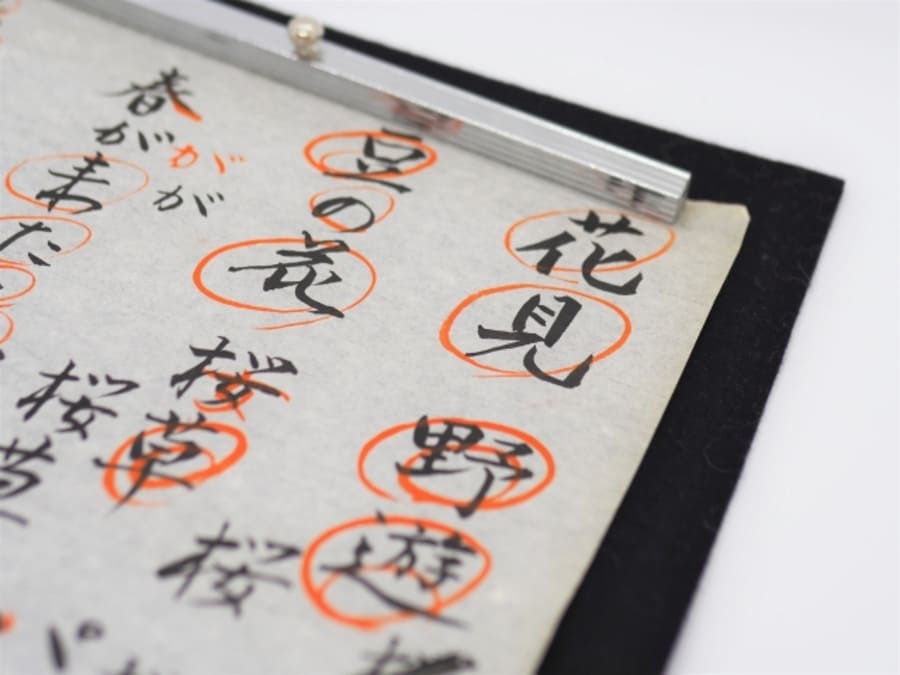 花見 野遊
豆の花 桜草 桜
春が来た
がが
桜草